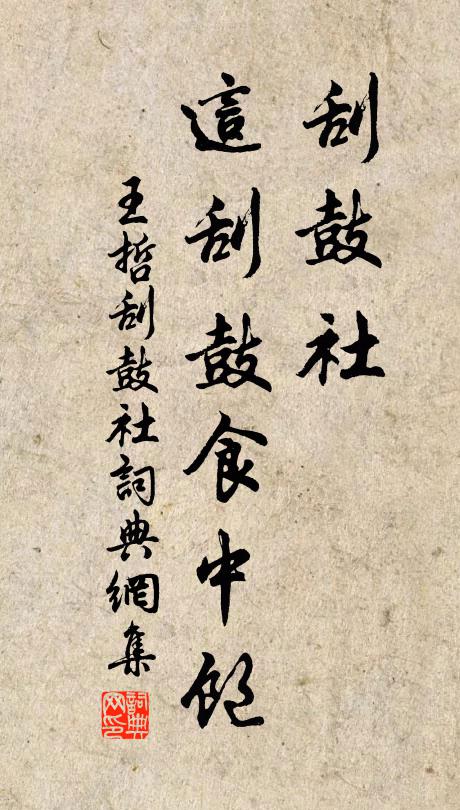 刮鼓社
這刮鼓食中飽
王哲刮鼓社詞典網集
詞典网印